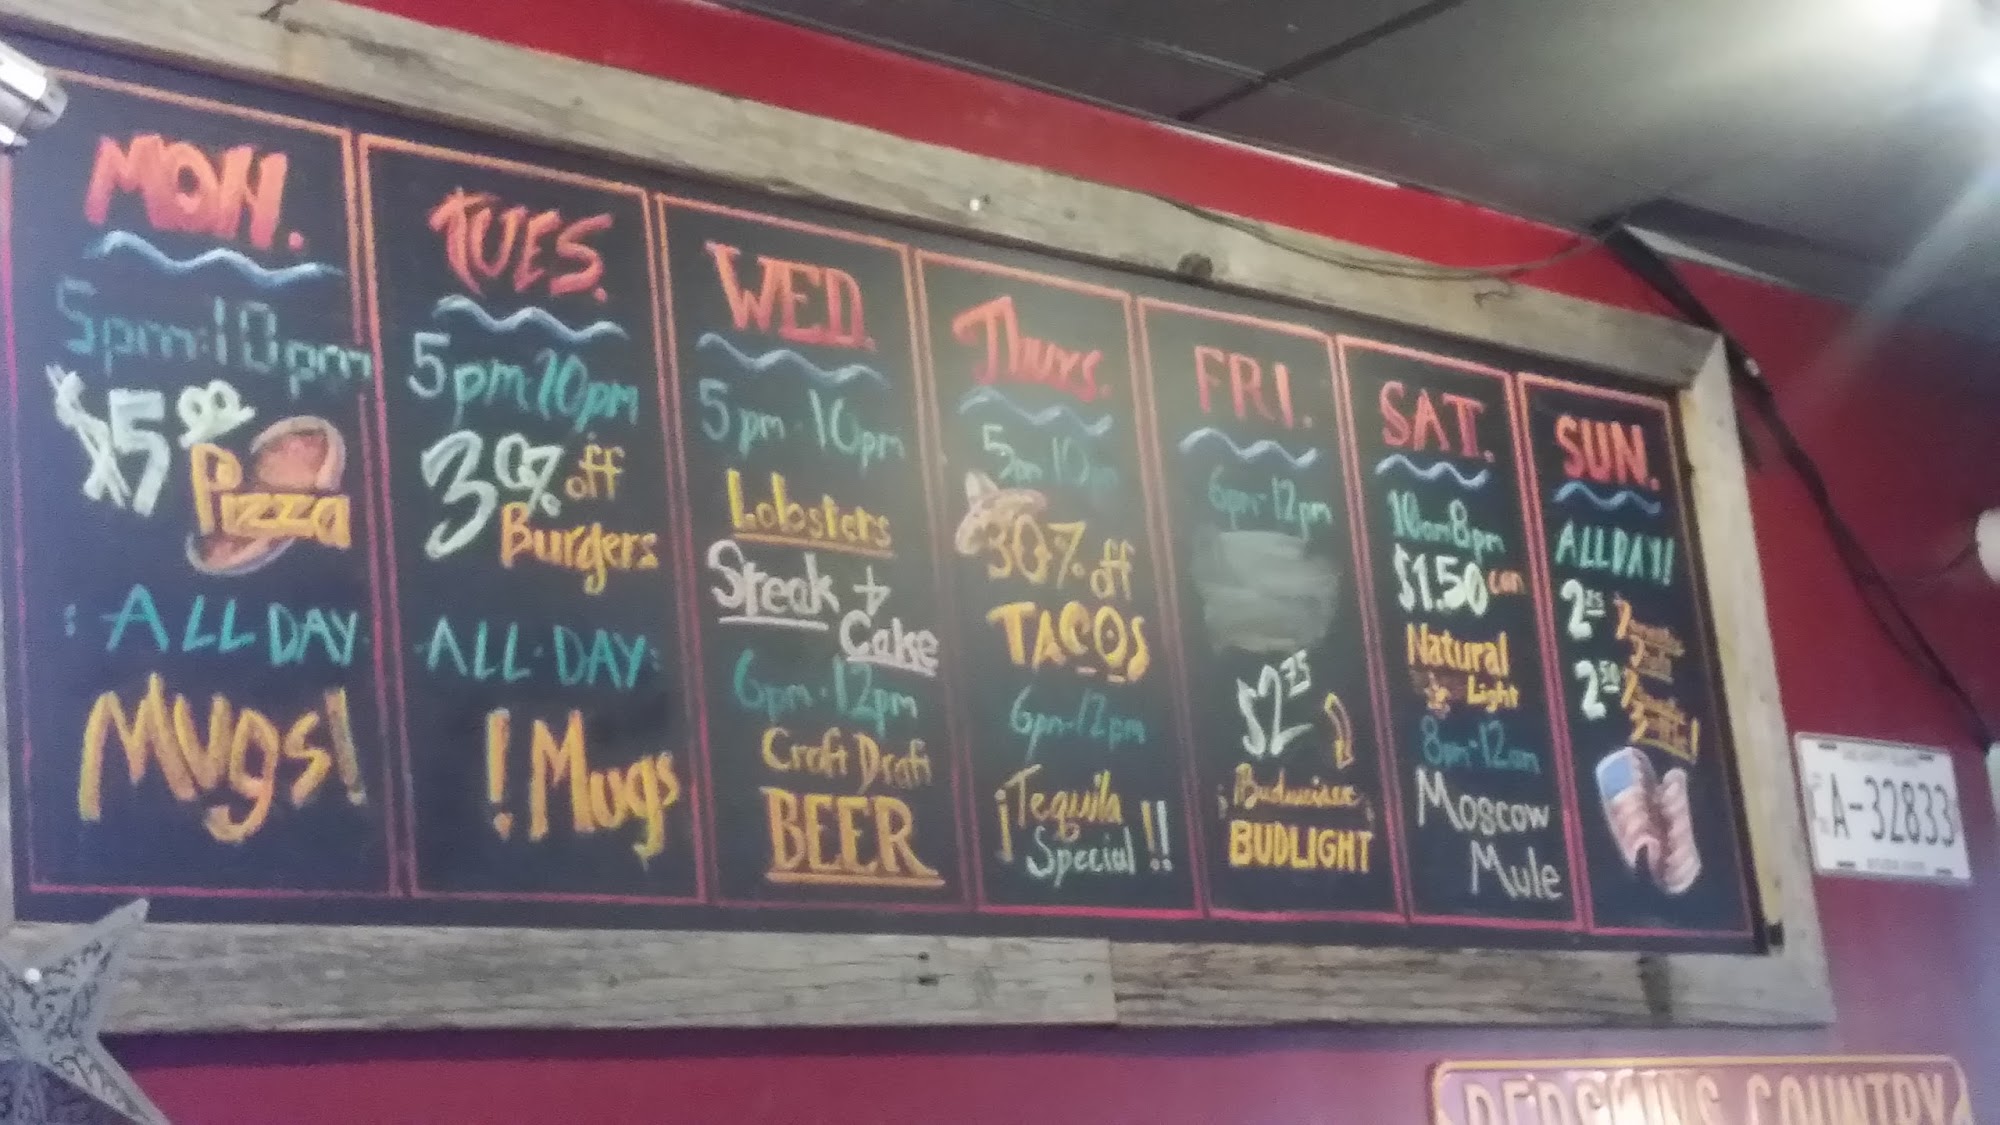 MON.
5pm-10pm
$5.00
Pizza
ALL DAY
Mugs!
TUES.
5pm-10pm
30% off
Burgers
ALL DAY
! Mugs
WED.
5pm-10pm
Lobsters
Steak +
Cake
6pm-12pm
Craft Draft
BEER
Thurs.
5pm 10pm
30% off
TACOS
6pm-12pm
¡Tequila
Special!!
FRI.
6pm-12pm
$2.75
Budweiser
BUDLIGHT
SAT.
10am 8pm
$1.50 can
Natural
Light
8pm-12am
Moscow
Mule
SUN.
ALL DAY!
2.25
2.50
A-32833
REDSKINS COUNTRY